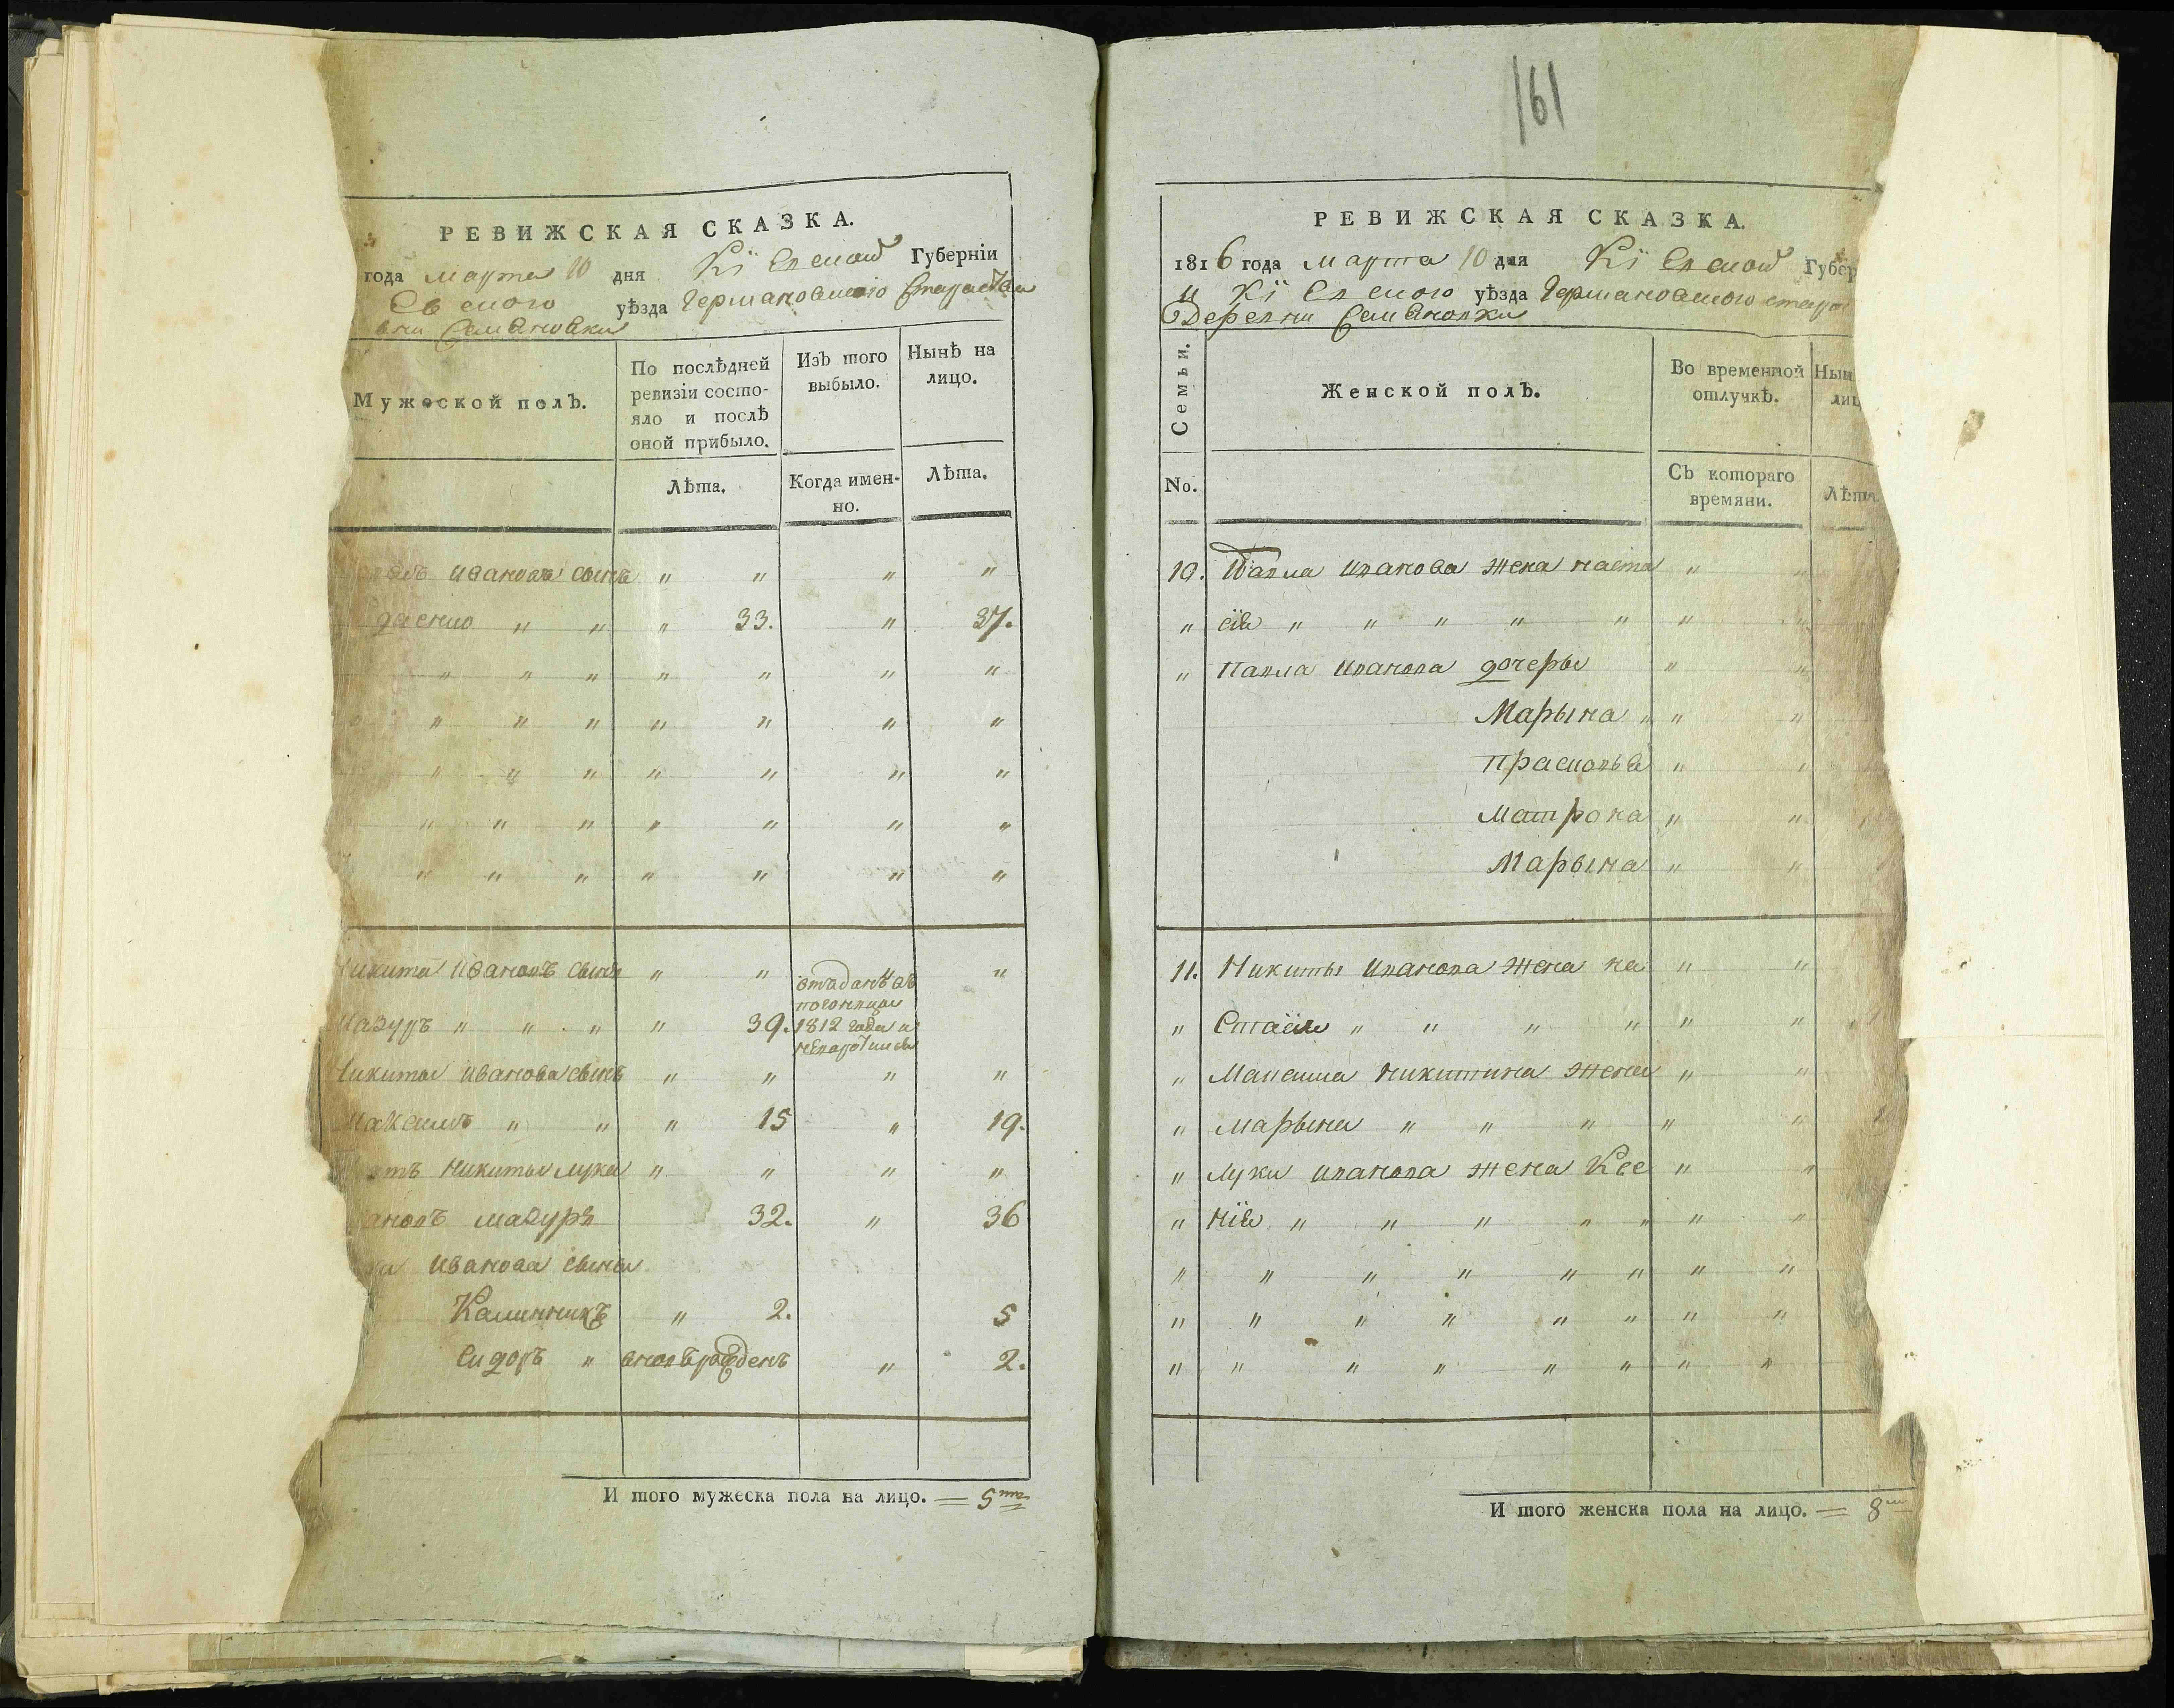 161
РЕВИЖСКАЯ СКАЗКА.
года марта 10 дня Кіевской Губерніи
уѣзда Германовского Староства
Семеновки
Мужеской полъ.
По послѣдней ревизіи состо-
яло и послѣ
оной прибыло.
Изъ того
выбыло.
Нынѣ на
лицо.
Лѣта.
Когда имен-
но.
Лѣта.
Ивановъ сынъ " " " "
" " " 33. " 37.
" " " " " " "
" " " " " " "
" " " " " " "
" " " " " " "
" " " " " " "
Никита Ивановъ сынъ " " "
отданъ въ
1812 года и
Мазуръ " " " " 39.
Никиты Иванова сынъ " " " "
Максимъ " " " 15 " 19.
Никиты Лука " " " "
Мазуръ 32. " 36
Иванова сыны
Калинникъ " 2. 5
Сидоръ " вновърожденъ " 2.
И того мужеска пола на лицо. = 5
РЕВИЖСКАЯ СКАЗКА.
1816 года марта 10 дня Кіевской Губер
и Кіевского уѣзда Германовского старо
Деревни Семеновки
Семьи.
Женской полъ.
Во временной
отлучкѣ.
Нын
лиц
No.
Съ котораго
времяни.
Лѣта
10. Павла Иванова жена наста " "
" сія " " " " " " "
" Павла Иванова дочеры " "
Марына " " "
Прасковья " "
Матрона " "
Марына " "
11. Никиты Иванова жена на " "
" стасія " " " " " "
" Максима Никитина жена " "
" Марына " " " " "
" Луки Иванова жена Ксе " "
" нія " " " " " " "
" " " " " " " "
" " " " " " " "
" " " " " " " "
И того женска пола на лицо. = 8